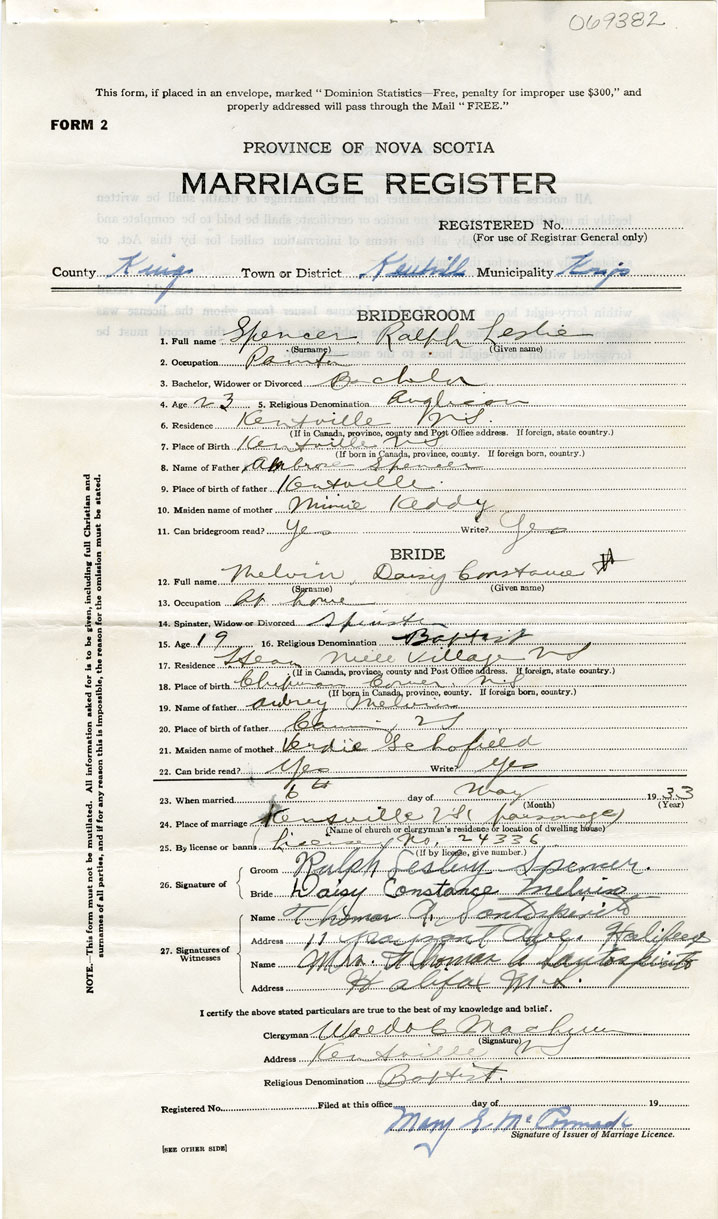 069382
This form, if placed in an envelope, marked "Dominion Statistics—Free, penalty for improper use $300," and
properly addressed will pass through the Mail "FREE."
FORM 2
PROVINCE OF NOVA SCOTIA
MARRIAGE REGISTER
REGISTERED No.
(For use of Registrar General only)
County Kings Town or District Kentville Municipality Kings
BRIDEGROOM
1. Full name Spencer Ralph Leslie
(Surname) (Given name)
2. Occupation Painter
3. Bachelor, Widower or Divorced Bachelor
4. Age 23 5. Religious Denomination Anglican
6. Residence Kentville N.S.
(If in Canada, province, county and Post Office address. If foreign, state country.)
7. Place of Birth Kentville N.S
(If born in Canada, province, county. If foreign born, country.)
8. Name of Father Ambrose Spencer
9. Place of birth of father Kentville
10. Maiden name of mother Minnie Keddy
11. Can bridegroom read? Yes Write? Yes
BRIDE
12. Full name Melvin, Daisy Constance
(Surname) (Given name)
13. Occupation At home
14. Spinster, Widow or Divorced Spinster
15. Age 19 16. Religious Denomination Baptist
17. Residence Steam Mill Village NS
(If in Canada, province, county and Post Office address. If foreign, state country.)
18. Place of birth Chipman Corner N.S
(If born in Canada, province, county. If foreign born, country.)
19. Name of father Aubrey Melvin
20. Place of birth of father Canning NS
21. Maiden name of mother Verdie Schofield
22. Can bride read? Yes Write? Yes
23. When married 6th day of May 1933
(Month) (Year)
24. Place of marriage Kentville N.S. (parsonage)
(Name of church or clergyman's residence or location of dwelling house)
25. By license or banns License No. 24336
(If by license, give number.)
26. Signature of Groom Ralph Leslie Spencer.
Bride Daisy Constance Melvin
27. Signatures of Witnesses
Name Thomas A. Santospirito
Address 11 Ave. Halifax
Name Mrs. Thomas A Santospirito
Address Halifax N.S.
I certify the above stated particulars are true to the best of my knowledge and belief.
Clergyman Waldo C
(Signature)
Address Kentville NS
Religious Denomination Baptist.
Registered No. Filed at this office day of 19
Mary E. McCormack
Signature of Issuer of Marriage Licence.
[SEE OTHER SIDE]
NOTE.—This form must not be mutilated. All information asked for is to be given, including full Christian and
surnames of all parties, and if for any reason this is impossible, the reason for the omission must be stated.